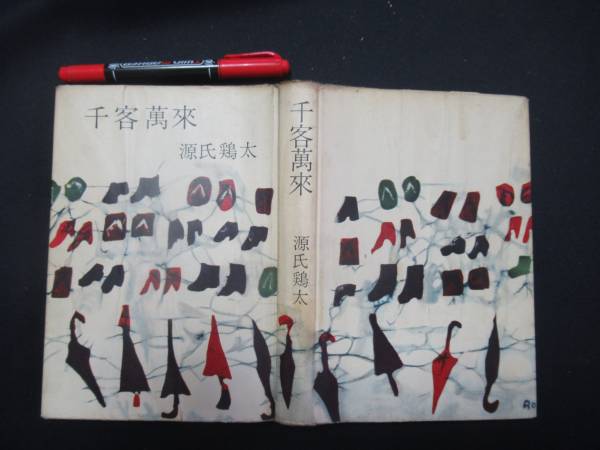 千客萬來
源氏鶏太
千客萬來
源氏鶏太